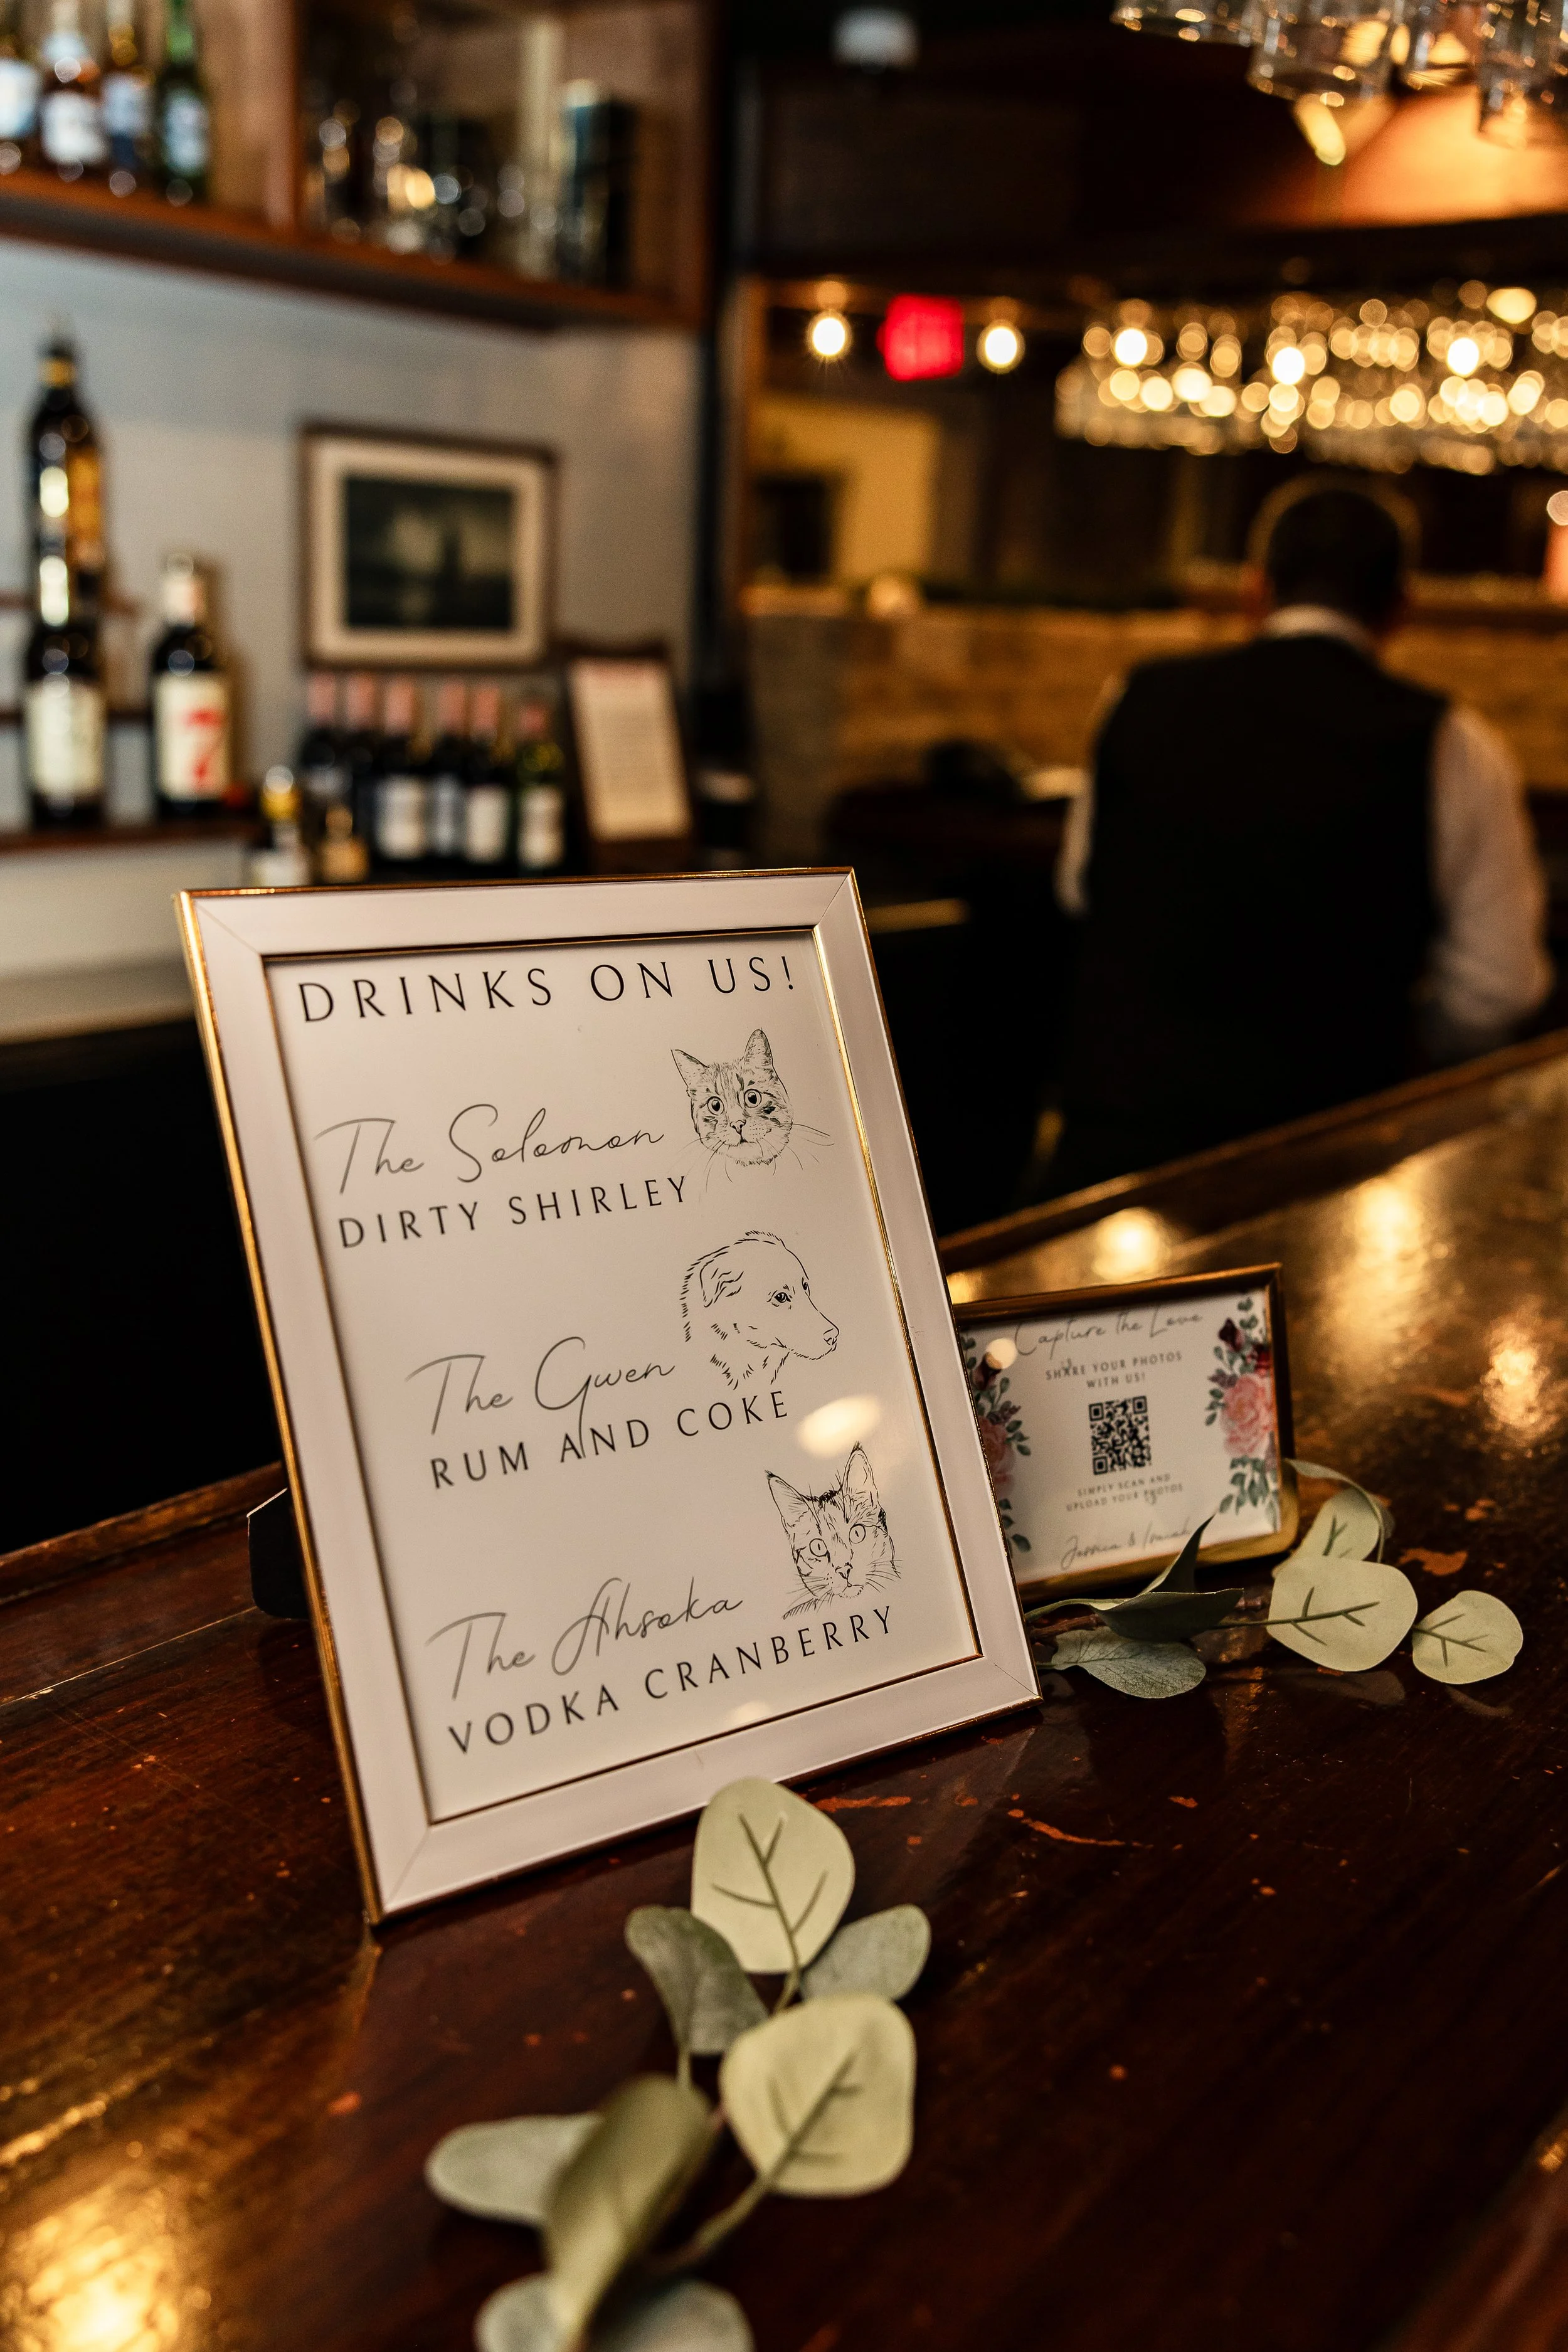 DRINKS ON US!
The Solomon
DIRTY SHIRLEY
The Gwen
RUM AND COKE
The Ahsoka
VODKA CRANBERRY
Capture the Love
SHARE YOUR PHOTOS
WITH US!
SIMPLY SCAN AND
UPLOAD YOUR PHOTOS
Jessica & Isaiah
7